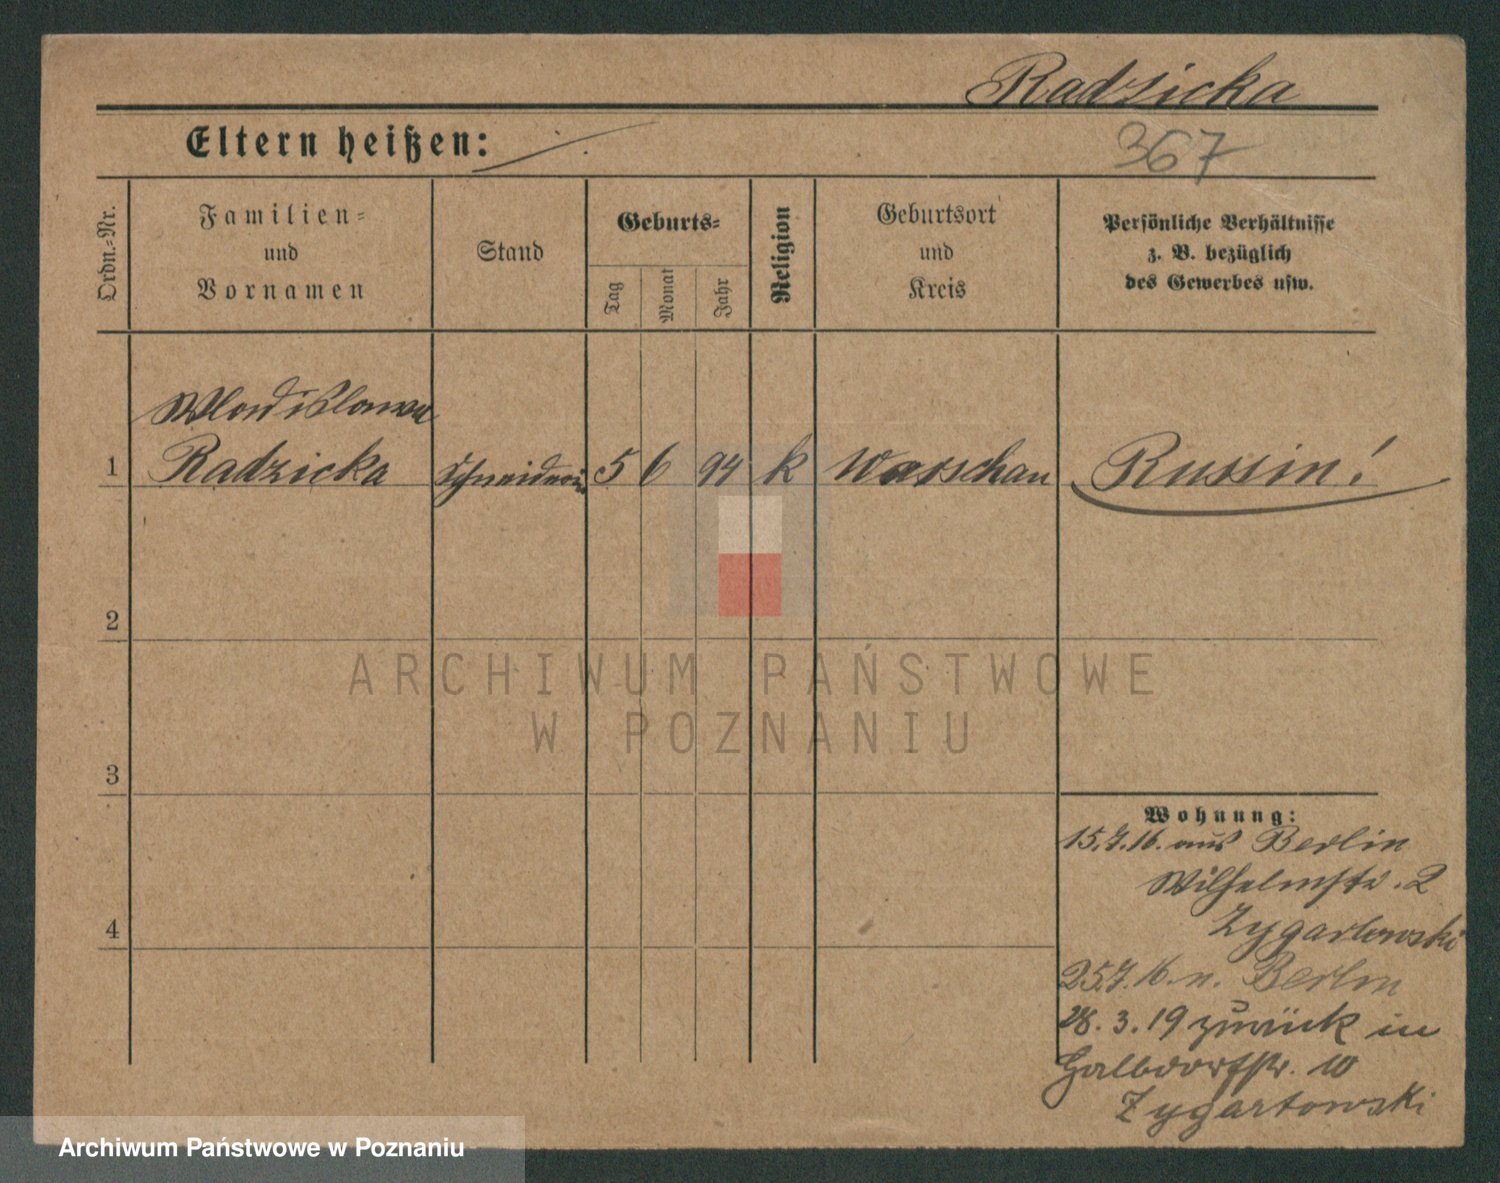 Radzicka
Eltern heißen:
367
Ordn.-Nr.
Familien-
und
Vornamen
Stand
Geburts-
Tag
Monat
Jahr
Religion
Geburtsort
und
Kreis
Persönliche Verhältnisse
z. B. bezüglich
des Gewerbes usw.
Wladislawa
1 Radzicka Schneiderin 5 6 94 k Warschau Russin!
2
3
4
Wohnung:
15.7.16. aus Berlin
Wilhelmstr. 2
Zygartowski
25.7.16. n. Berlin
28. 3. 19 zurück in
Halbdorfstr. 10
Zygartowski
ARCHIWUM PAŃSTWOWE
W POZNANIU
Archiwum Państwowe w Poznaniu